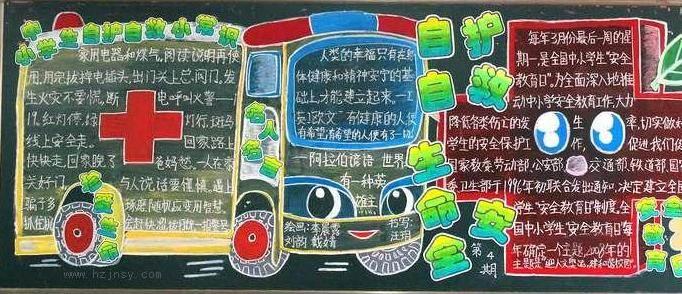 中小学生自护自救小常识
家用电器和煤气,阅读说明再使
用,用完拔掉电插头,出门关上总阀门。发
生火灾不要慌,断电呼叫火警一
19。红灯停,绿灯行,斑马
线上安全走。回家路上
快快走,回家晚了爸妈愁。一人在家
关好门,与人说话要谨慎。遇上
骗子多
抓住机
珍爱生命
名人名言
人类的幸福只有在身
体健康和精神安宁的基
础上,才能建立起来。—
[英]欧文 有健康的人便
有希望,有希望的人便有了一切
—阿拉伯谚语 世界
有一种英
雄主
绘画:
刘韵 戴婧
书写:
汪珺
自护
自救
生命
安全
第4期
每年3月份最后一周的星
期一是全国中小学生"安全
教育日",为全面深入地推
动中小学安全教育工作,大力
降低各类伤亡的发生率,切实做好
学生的安全保护工作,促进我们
国家教委、劳动部、公安部、交通部、铁道部、国
委、卫生部于1996年初联合发出通知,决定建立全国
学生"安全教育日"制度,全
国中小学生"安全教育日"
每年确定一个主题,
主题是
安全
教育
www.hzjnsy.com